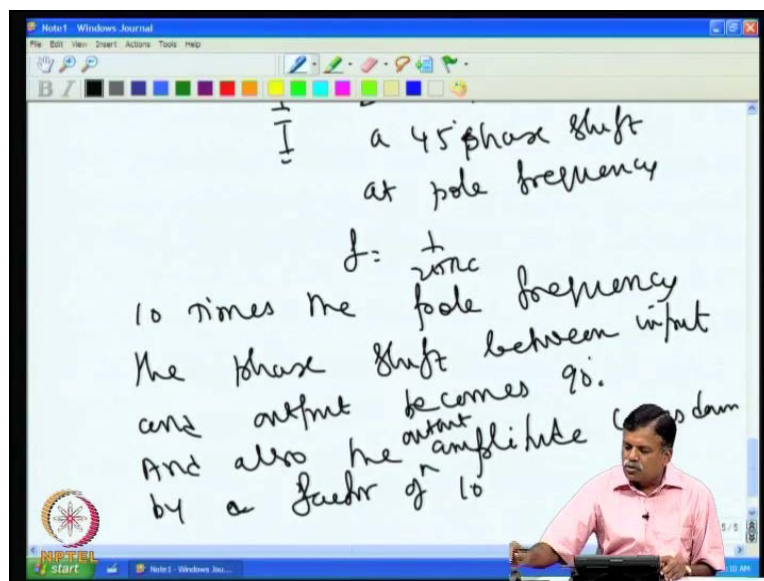 Note1 Windows Journal
File Edit View Insert Actions Tools Help
B I
a 45° phase shift
at pole frequency
f = 1
2πRC
10 times the pole frequency
the phase shift between input
and output becomes 90°.
output
And also the amplitude down
by a factor of 10
5 / 5
NPTEL
start
Note1 - Windows Jou...
:10 AM